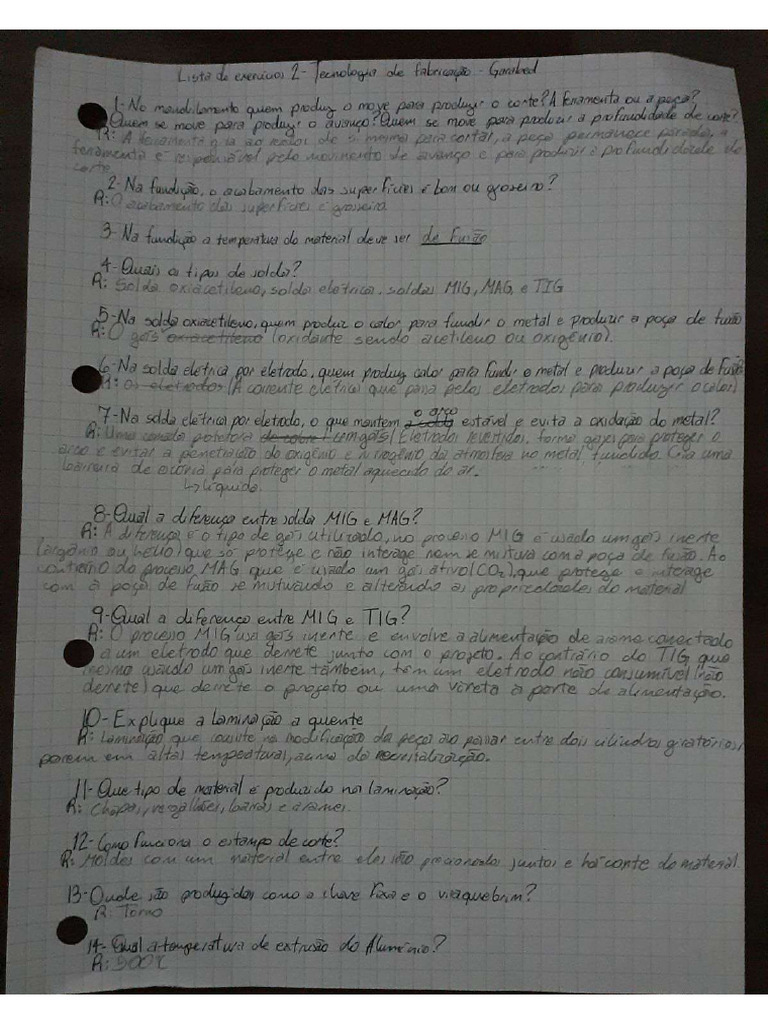 Lista de exercícios 2- Tecnologia de fabricação - Garabed
1- No mandrilamento quem produz o move para produzir o corte? A ferramenta ou a peça?
Quem se move para produzir o avanço? Quem se move para produzir a profundidade de corte?
R: A ferramenta gira ao redor de si mesma para cortar, a peça permanece parada, a
ferramenta é responsável pelo movimento de avanço e para produzir a profundidade de
corte.
2- Na fundição, o acabamento das superfícies é bom ou grosseiro?
R: O acabamento das superfícies é grosseiro
3- Na fundição a temperatura do material deve ser de Fusão
4- Quais os tipos de solda?
R: Solda oxiacetileno, solda eletrica, soldas MIG, MAG, e TIG
5- Na solda oxiacetileno, quem produz o calor, para fundir o metal e produzir a poça de fusão
R: O gás oxiacetileno (oxidante sendo acetileno ou oxigênio).
6- Na solda elétrica por eletrodo, quem produz calor para fundir o metal e produzir a poça de Fusão
R: os eletrodos (A corrente elétrica que passa pelos eletrodos para produzir o calor)
o arco
7- Na solda elétrica por eletrodo, o que mantem a solda estável e evita a oxidação do metal?
R: Uma camada protetora de cobre com gás (Eletrodos revertidos, forma gases para proteger o
arco e evitar a penetração do oxigênio e nitrogênio da atmosfera no metal fundido. Cria uma
barreira de escória para proteger o metal aquecido do ar.
↳ líquida.
8- Qual a diferença entre solda MIG e MAG?
R: A diferença é o tipo de gás utilizado, no processo MIG é usado um gás inerte
(argônio ou hélio) que só protege e não interage nem se mistura com a poça de fusão. Ao
contrário do processo MAG que é usado um gás ativo (CO₂), que protege e interage
com a poça de fusão se misturando e alterando as propriedades do material
9- Qual a diferença entre MIG e TIG?
R: O processo MIG usa gás inerte e envolve a alimentação de arame conectado
a um eletrodo que derrete junto com o projeto. Ao contrário do TIG que
mesmo usando um gás inerte também, têm um eletrodo não consumível (não
derrete) que derrete o projeto ou uma vareta à parte de alimentação.
10- Explique a laminação a quente
R: Laminação que consiste na modificação da peça ao passar entre dois cilindros giratórios,
porem em altas temperaturas, acima da recristalização.
11- Que tipo de material é produzido na laminação?
R: Chapas, vergalhões, barras e arames.
12- Como funciona o estampo de corte?
R: Moldes com um material entre eles são precionados juntos e há corte do material.
13- Onde são produzidas como a chave fixa e o viraquebrim?
R: Torno
14- Qual a temperatura de extrusão do Alumínio?
R: 500°C